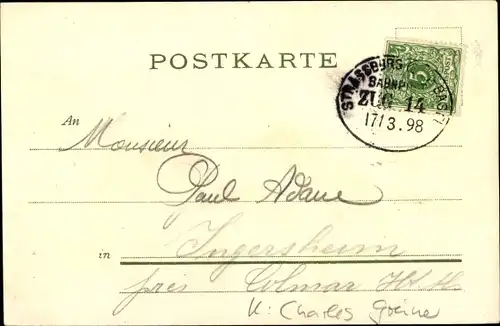 POSTKARTE
STRASSBURG BASEL
BAHNP
ZUG 14
17/3.98
5
An
Monsieur
Paul Adam
in
Ingersheim
près Colmar
K: Charles Greiner